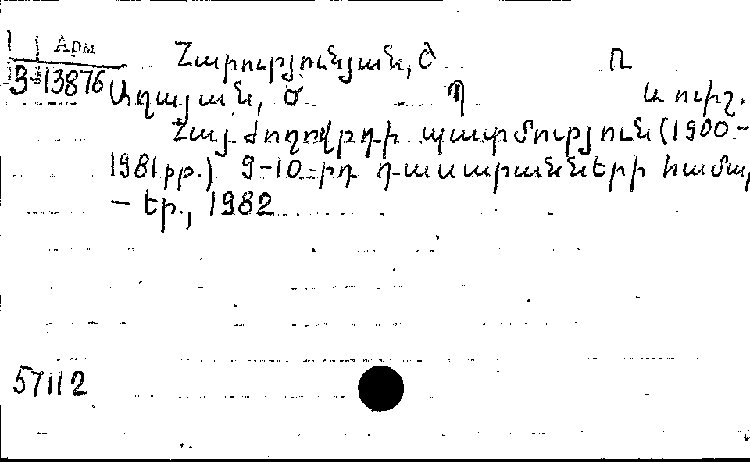 Арм
3-13876
Հարությունյան, Ծ Ռ
Աղայան, Ծ Պ և ուրիշ.
Հայ ժողովրդի պատմություն (1900-
1981թթ.) 9-10-րդ դասարանների համար,
– Եր., 1982
57112